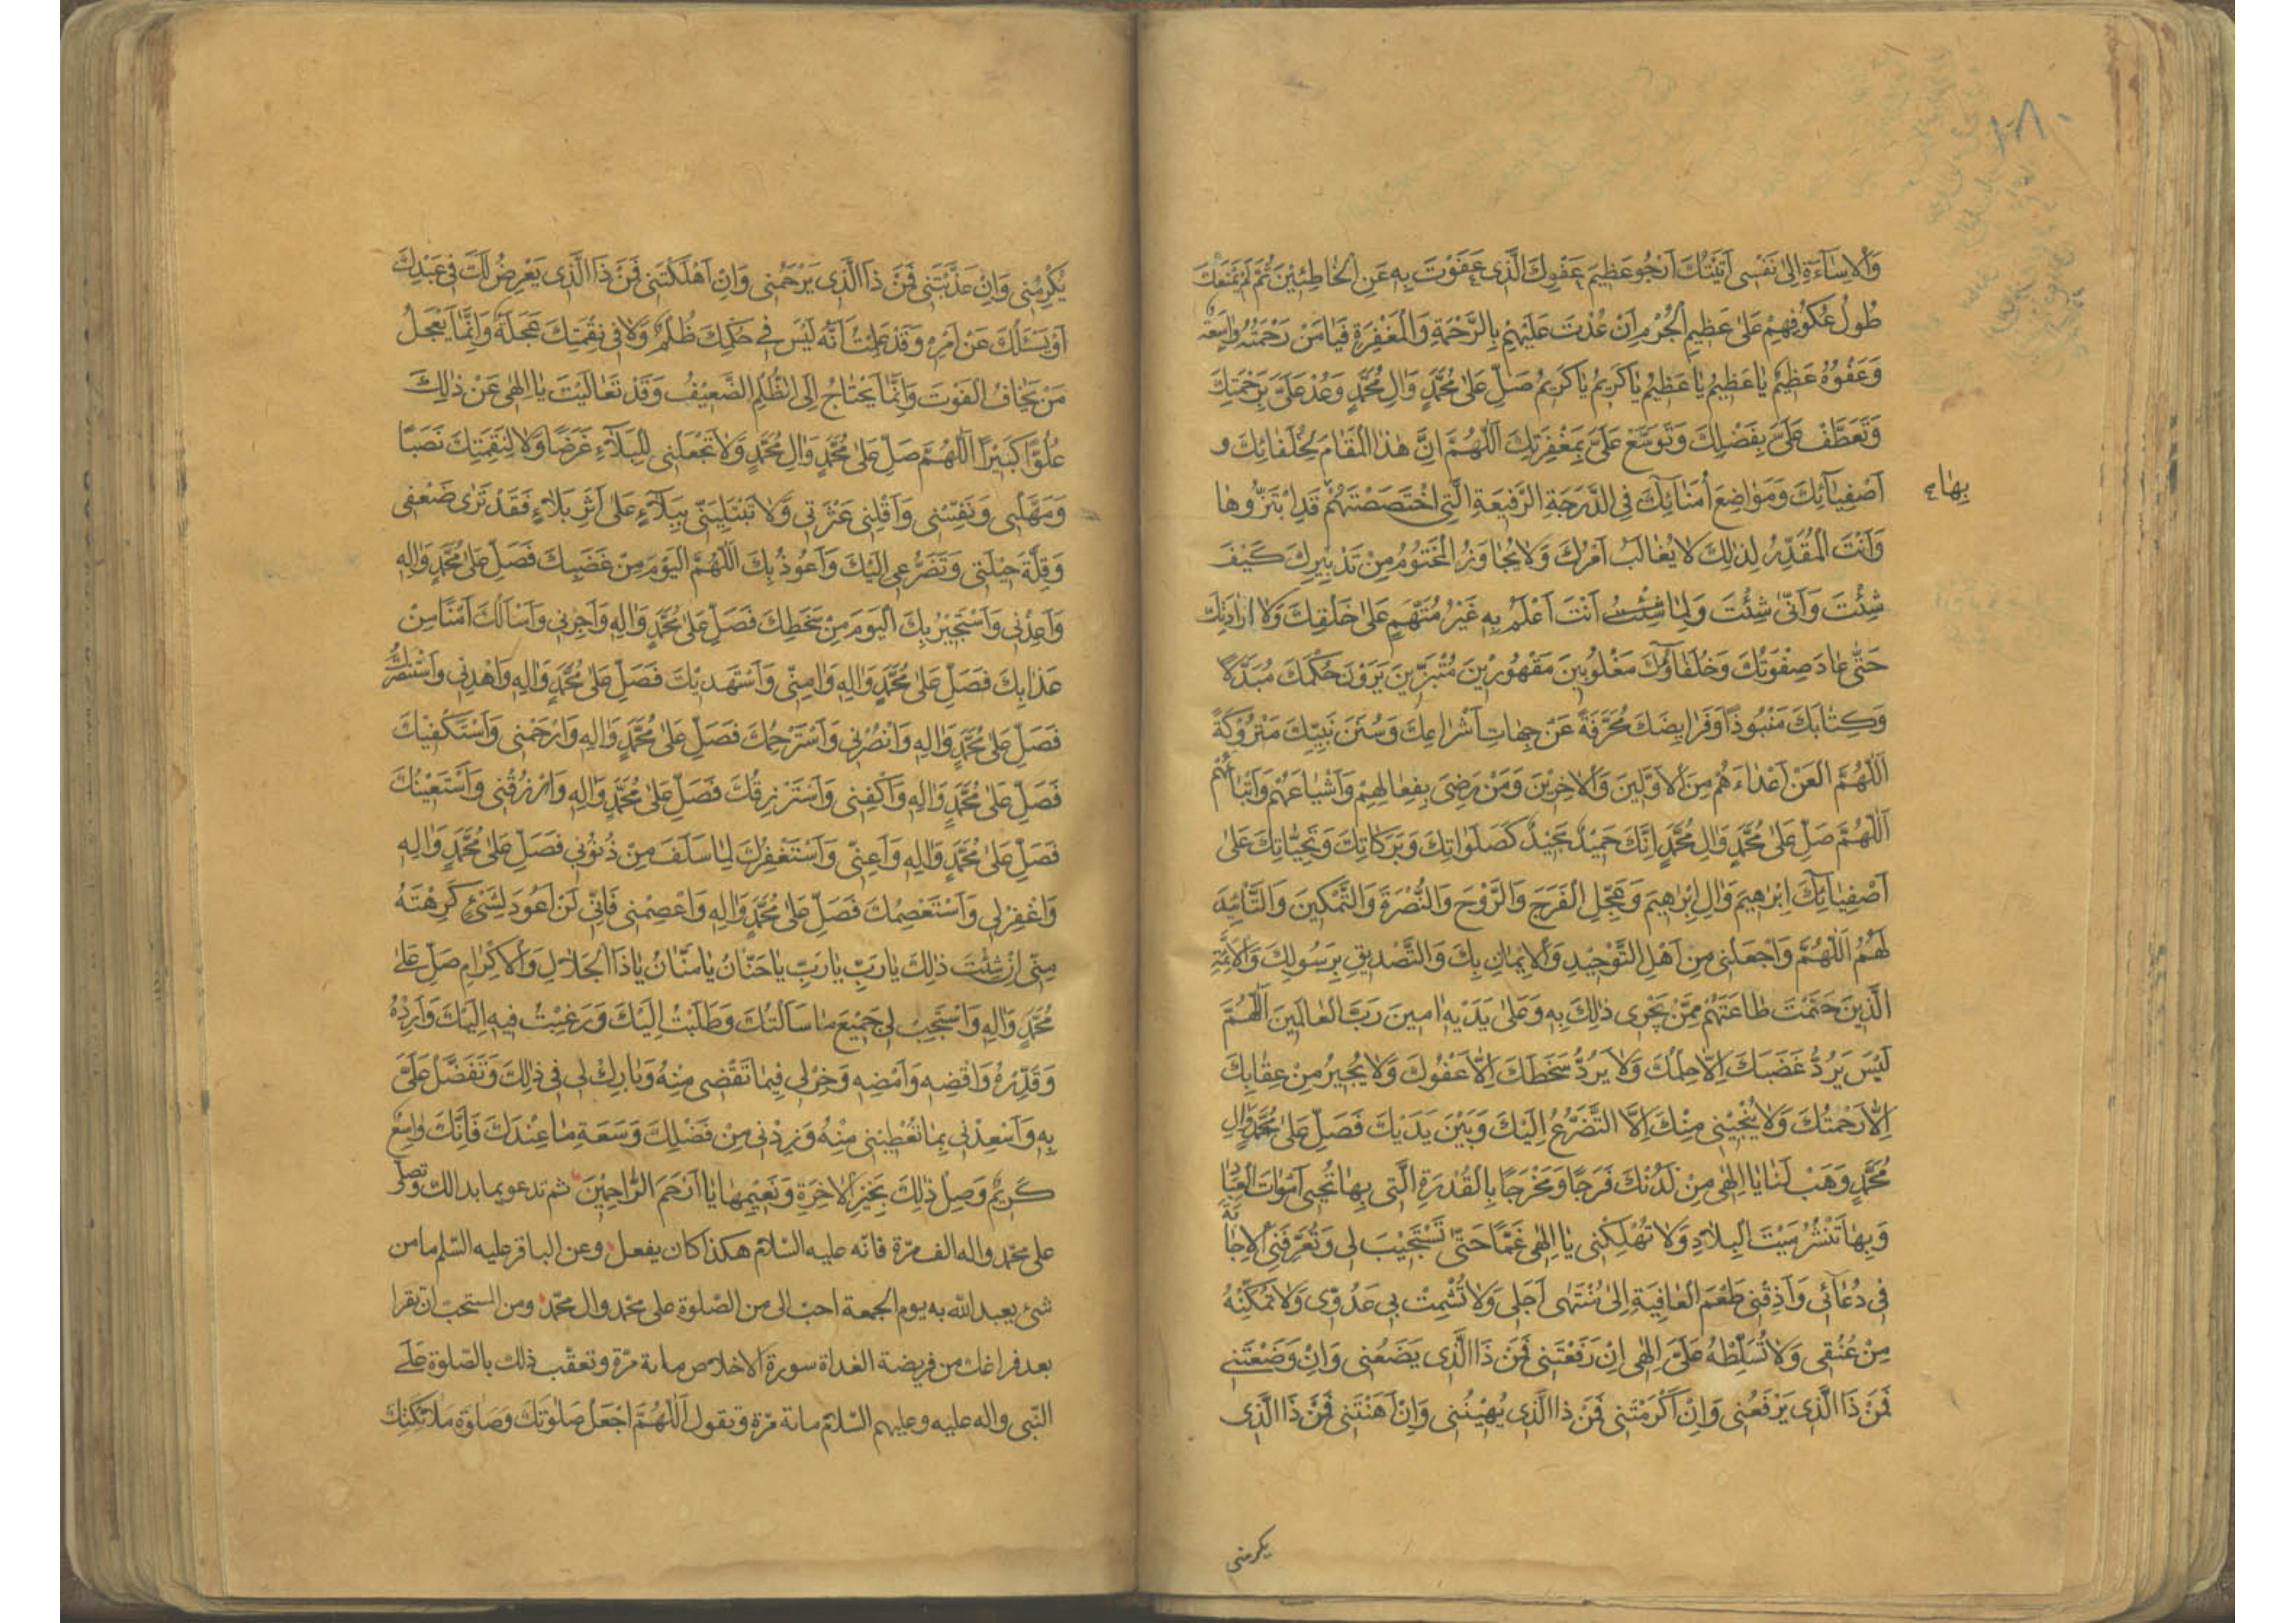 ١٠٨
وَالْاِسٰاۤءَةِ اِلٰى نَفْسى اَتَيْتُكَ اَرْجُو عَظيمَ عَفْوِكَ الَّذى عَفَوْتَ بِهِ عَنِ الْخٰاطِئِيْنَ ثُمَّ لَمْ يَمْنَعْكَ
طُولُ عُكُوُفِهِمْ عَلىٰ عَظيمِ الْجُرْمِ اَنْ عُدْتَ عَلَيْهِمْ بِالرَّحْمَةِ وَالْمَغْفِرَةِ فَيٰا مَنْ رَحْمَتُهُ وٰاسِعَةٌ
وَعَفْوُهُ عَظيمٌ يٰا عَظيمُ يٰا عَظيمُ يٰا كَريمُ يٰا كَريمُ صَلِّ عَلىٰ مُحَمَّدٍ وَاٰلِ مُحَمَّدٍ وَعُدْ عَلَىَّ بِرَحْمَتِكَ
وَتَعَطَّفْ عَلَىَّ بِفَضْلِكَ وَتَوَسَّعْ عَلَىَّ بِمَغْفِرَتِكَ اَللّٰهُمَّ اِنَّ هٰذَا الْمَقٰامَ لِخُلَفٰائِكَ وَ
اَصْفِيٰاۤئِكَ وَمَوٰاضِعَ اُمَنٰائِكَ فِى الدَّرَجَةِ الرَّفيعَةِ الَّتِى اخْتَصَصْتَهُمْ قَدِ ابْتَزُّوهٰا
بِهٰا
وَاَنْتَ الْمُقَدِّرُ لِذٰلِكَ لٰا يُغٰالَبُ اَمْرُكَ وَلٰا يُجٰاوَزُ الْمَحْتُوُمُ مِنْ تَدْبيرِكَ كَيْفَ
شِئْتَ وَاَنّٰى شِئْتَ وَلِمٰا شِئْتَ اَنْتَ اَعْلَمُ بِهِ غَيْرُ مُتَّهَمٍ عَلىٰ خَلْقِكَ وَلٰا اِرٰادَتِكَ
حَتّٰى عٰادَ صِفْوَتُكَ وَخُلَفٰاۤؤُكَ مَغْلُوبينَ مَقْهُورْينَ مُبْتَزّينَ يَرَوْنَ حُكْمَكَ مُبَدَّلًا
وَكِتٰابَكَ مَنْبُوذًا وَفَرٰايِضَكَ مُحَرَّفَةً عَنْ جِهٰاتِ اَشْرٰاعِكَ وَسُنَنَ نَبِيِّكَ مَتْرُوْكَةً
اَللّٰهُمَّ الْعَنْ اَعْدٰاءَهُمْ مِنَ الْاَوَّلينَ وَالْاٰخِرْينَ وَمَنْ رَضِىَ بِفِعٰالِهِمْ وَاَشْيٰاعَهُمْ وَاَتْبٰاعَهُمْ
اَللّٰهُمَّ صَلِّ عَلىٰ مُحَمَّدٍ وَاٰلِ مُحَمَّدٍ اِنَّكَ حَميْدٌ مَجيْدٌ كَصَلَوٰاتِكَ وَبَرَكٰاتِكَ وَتَحِيّٰاتِكَ عَلىٰ
اَصْفِيٰائِكَ اِبْرٰهيمَ وَاٰلِ اِبْرٰهيمَ وَعَجِّلِ الْفَرَجَ وَالرَّوْحَ وَالنُّصْرَةَ وَالتَّمْكينَ وَالتَّأْئيدَ
لَهُمْ اَللّٰهُمَّ وَاجْعَلْنى مِنْ اَهْلِ التَّوْحيْدِ وَالْايمٰانِ بِكَ وَالتَّصْديقِ بِرَسُولِكَ وَالْاَئِمَّةِ
الَّذينَ حَتَمْتَ طٰاعَتَهُمْ مِمَّنْ يَجْرى ذٰلِكَ بِهِ وَعَلىٰ يَدَيْهِ اٰمينَ رَبَّ الْعٰالَمينَ اَللّٰهُمَّ
لَيْسَ يَرُدُّ غَضَبَكَ اِلّٰا حِلْمُكَ وَلٰا يَرُدُّ سَخَطَكَ اِلّٰا عَفْوُكَ وَلٰا يُجيرُ مِنْ عِقٰابِكَ
اِلّٰا رَحْمَتُكَ وَلٰا يُنْجيْنى مِنْكَ اِلَّا التَّضَرُّعُ اِلَيْكَ وَبَيْنَ يَدَيْكَ فَصَلِّ عَلىٰ مُحَمَّدٍ وَاٰلِ
مُحَمَّدٍ وَهَبْ لَنٰا يٰا اِلٰهى مِنْ لَدُنْكَ فَرَجًا وَمَخْرَجًا بِالْقُدْرَةِ الَّتى بِهٰا تُحْيى اَمْوٰاتَ الْعِبٰادِ
وَبِهٰا تَنْشُرُ مَيْتَ الْبِلٰادِ وَلٰا تُهْلِكْنى يٰا اِلٰهى غَمًّا حَتّٰى تَسْتَجيْبَ لى وَتُعَرِّفَنِى الْاِجٰابَةَ
فى دُعٰائى وَاَذِقْنى طَعْمَ الْعٰافِيَةِ اِلىٰ مُنْتَهىٰ اَجَلى وَلٰا تُشْمِتْ بى عَدُوّى وَلٰا تُمَكِّنْهُ
مِنْ عُنُقى وَلٰا تُسَلِّطْهُ عَلَىَّ اِلٰهى اِنْ رَفَعْتَنى فَمَنْ ذَا الَّذى يَضَعُنى وَاِنْ وَضَعْتَنى
فَمَنْ ذَا الَّذى يَرْفَعُنى وَاِنْ اَكْرَمْتَنى فَمَنْ ذَا الَّذى يُهيْنُنى وَاِنْ اَهَنْتَنى فَمَنْ ذَا الَّذى
يكرمنى
يُكْرِمُنى وَاِنْ عَذَّبْتَنى فَمَنْ ذَا الَّذى يَرْحَمُنى وَاِنْ اَهْلَكْتَنى فَمَنْ ذَا الَّذى يَعْرِضُ لَكَ فى عَبْدِكَ
اَوْ يَسْئَلُكَ عَنْ اَمْرِهِ وَقَدْ عَلِمْتُ اَنَّهُ لَيْسَ فى حُكْمِكَ ظُلْمٌ وَلٰا فى نِقْمَتِكَ عَجَلَةٌ وَاِنَّمٰا يَعْجَلُ
مَنْ يَخٰافُ الْفَوْتَ وَاِنَّمٰا يَحْتٰاجُ اِلَى الظُّلْمِ الضَّعيْفُ وَقَدْ تَعٰالَيْتَ يٰا اِلٰهى عَنْ ذٰلِكَ
عُلُوًّا كَبيرًا اَللّٰهُمَّ صَلِّ عَلىٰ مُحَمَّدٍ وَاٰلِ مُحَمَّدٍ وَلٰا تَجْعَلْنى لِلْبَلٰاۤءِ غَرَضًا وَلٰا لِنِقْمَتِكَ نَصَبًا
وَمَهِّلْنى وَنَفِّسْنى وَاَقِلْنى عَثْرَتى وَلٰا تَبْتَلِيَنّى بِبَلٰاۤءٍ عَلىٰ اَثَرِ بَلٰاۤءٍ فَقَدْ تَرىٰ ضَعْفى
وَقِلَّةَ حيْلَتى وَتَضَرُّعى اِلَيْكَ وَاَعُوذُ بِكَ اَللّٰهُمَّ الْيَوْمَ مِنْ غَضَبِكَ فَصَلِّ عَلىٰ مُحَمَّدٍ وَاٰلِهِ
وَاَعِذْنى وَاَسْتَجيْرُ بِكَ الْيَوْمَ مِنْ سَخَطِكَ فَصَلِّ عَلىٰ مُحَمَّدٍ وَاٰلِهِ وَاَجِرْنى وَاَسْاَلُكَ اَمْنًا مِنْ
عَذٰابِكَ فَصَلِّ عَلىٰ مُحَمَّدٍ وَاٰلِهِ وَاٰمِنّى وَاَسْتَهْديْكَ فَصَلِّ عَلىٰ مُحَمَّدٍ وَاٰلِهِ وَاهْدِنى وَاَسْتَنْصِرُكَ
فَصَلِّ عَلىٰ مُحَمَّدٍ وَاٰلِهِ وَانْصُرْنى وَاَسْتَرْحِمُكَ فَصَلِّ عَلىٰ مُحَمَّدٍ وَاٰلِهِ وَارْحَمْنى وَاَسْتَكْفيْكَ
فَصَلِّ عَلىٰ مُحَمَّدٍ وَاٰلِهِ وَاكْفِنى وَاَسْتَرْزِقُكَ فَصَلِّ عَلىٰ مُحَمَّدٍ وَاٰلِهِ وَارْزُقْنى وَاَسْتَعيْنُكَ
فَصَلِّ عَلىٰ مُحَمَّدٍ وَاٰلِهِ وَاَعِنّى وَاَسْتَغْفِرُكَ لِمٰا سَلَفَ مِنْ ذُنُوبى فَصَلِّ عَلىٰ مُحَمَّدٍ وَاٰلِهِ
وَاغْفِرْ لى وَاَسْتَعْصِمُكَ فَصَلِّ عَلىٰ مُحَمَّدٍ وَاٰلِهِ وَاعْصِمْنى فَاِنّى لَنْ اَعُودَ لِشَىْءٍ كَرِهْتَهُ
مِنّى اِنْ شِئْتَ ذٰلِكَ يٰا رَبِّ يٰا رَبِّ يٰا حَنّٰانُ يٰا مَنّٰانُ يٰا ذَا الْجَلٰالِ وَالْاِكْرٰامِ صَلِّ عَلىٰ
مُحَمَّدٍ وَاٰلِهِ وَاسْتَجِبْ لى جَميْعَ مٰا سَاَلْتُكَ وَطَلَبْتُ اِلَيْكَ وَرَغِبْتُ فيهِ اِلَيْكَ وَاَرِدْهُ
وَقَدِّرْهُ وَاقْضِهِ وَاَمْضِهِ وَخِرْ لى فيمٰا تَقْضى مِنْهُ وَبٰارِكْ لى فى ذٰلِكَ وَتَفَضَّلْ عَلَىَّ
بِهِ وَاَسْعِدْنى بِمٰا تُعْطينى مِنْهُ وَزِدْنى مِنْ فَضْلِكَ وَسَعَةِ مٰا عِنْدَكَ فَاِنَّكَ وٰاسِعٌ
كَريْمٌ وَصِلْ ذٰلِكَ بِخَيْرِ الْاٰخِرَةِ وَنَعيْمِهٰا يٰا اَرْحَمَ الرّٰاحِميْنَ ثم تدعو بما بدا لك وتصلّى
على محمّد واله الف مرّة فانّه عليه السّلام هكذا كان يفعل وعن الباقر عليه السّلم ما من
شئ يعبد اللّه به يوم الجمعة احبّ الى من الصّلوة على محمّد وال محمّد ومن المستحبّ ان تقرا
بعد فراغك من فريضة الغداة سورة الاخلاص مائة مرّة وتعقّب ذلك بالصّلوة على
النّبى واله عليه وعليهم السّلام مائة مرّة وتقول اَللّٰهُمَّ اجْعَلْ صَلٰوتَكَ وَصَلٰوةَ مَلٰائِكَتِكَ